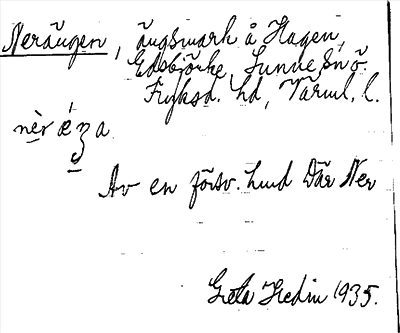 Nerängen, ängsmark å Hagen,
Edsbjörke, Sunne sn ö.
Fryksd. hd, Värml. l.
nèr ǽŋa
Av en försv. hmd Där Ner
Greta Hedin 1935.